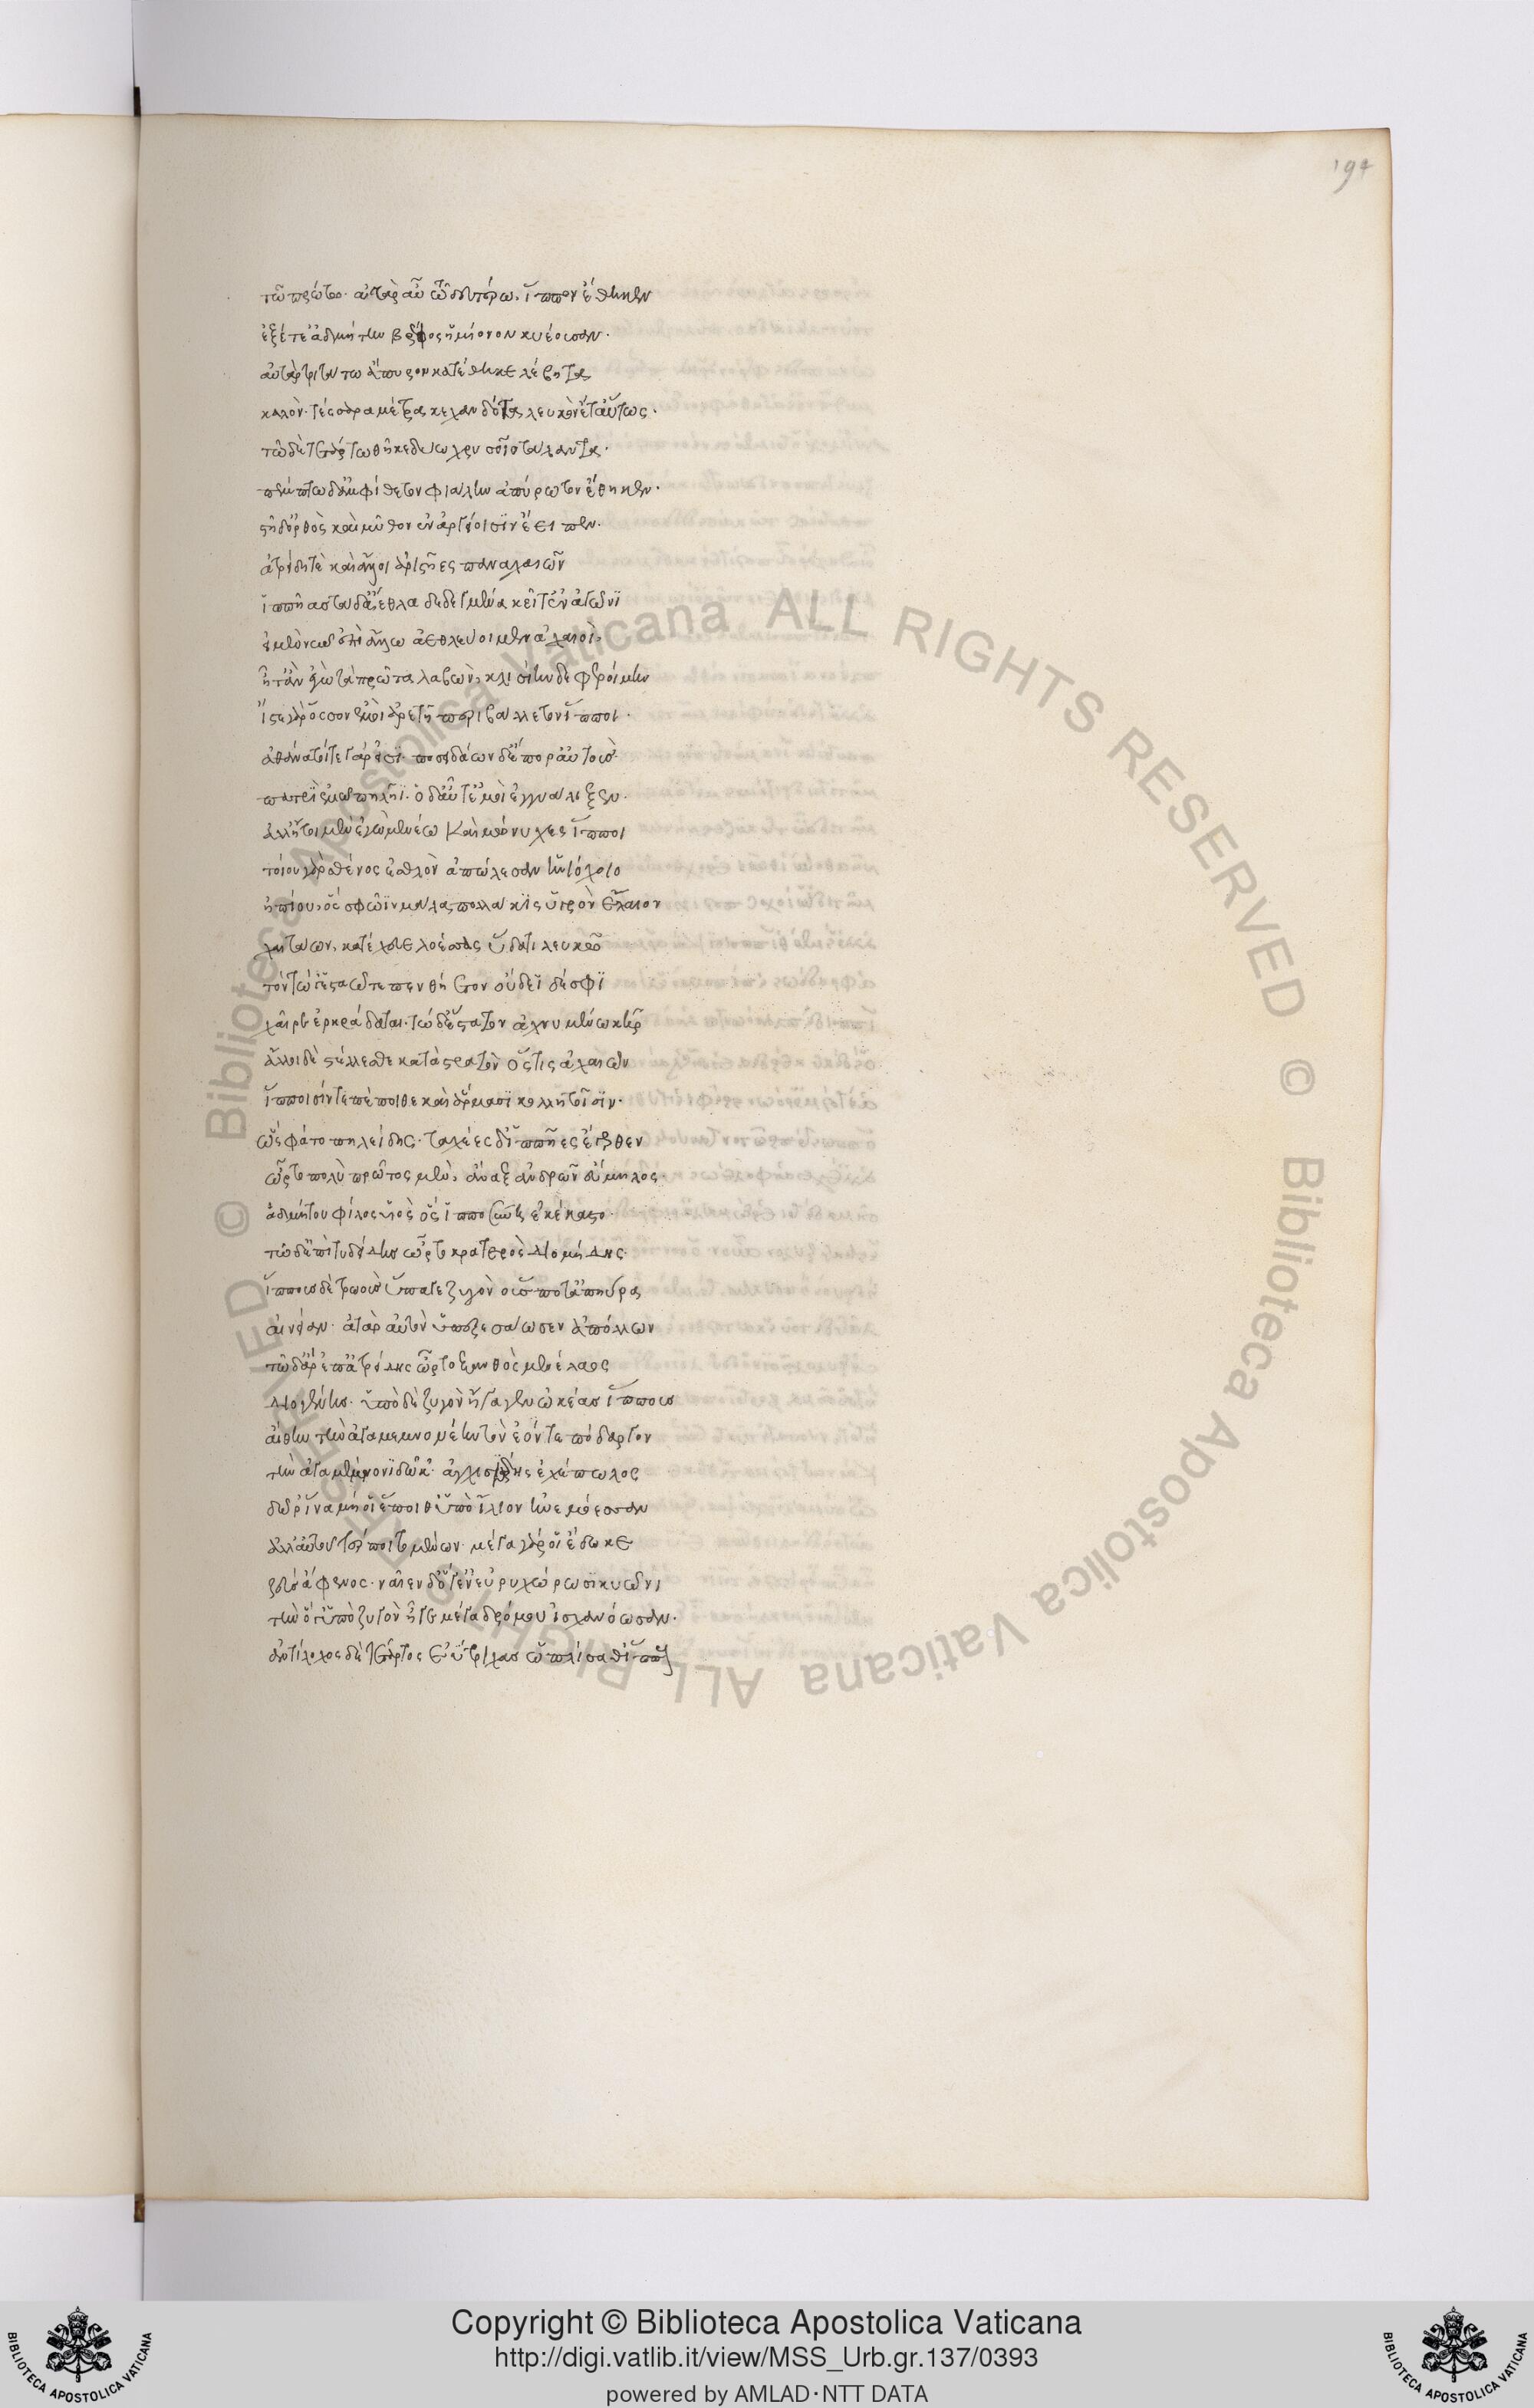 194
τῷ πρώτω· αὐτὰρ αὖ τῶ δευτέρω, ἵππον ἔθηκεν
ἑξέτε ἀδμήτην βρέφος ἡμίονον κυέουσαν·
αὐτὰρ τριτάτω ἄπυρον κατέθηκε λέβητα
καλὸν· τέσσαρα μέτρα κεχανδότα λευκὸν ἔτ' αὔτως·
τῶ δὲ τετάρτω θῆκε δύω χρυσοῖο τάλαντα·
πέμπτω δ' ἀμφίθετον φιάλην ἀπύρωτον ἔθηκεν·
στῆ δ' ὀρθὸς καὶ μῦθον ἐν ἀργείοισιν ἔειπεν·
ἀτρείδη τὲ καὶ ἄλλοι ἀριστῆες παναχαιῶν
ἱππῆας τάδ' ἄεθλα δεδεγμένα κεῖτ' ἐν ἀγῶνι
εἰ μὲν νῦν ἐπὶ ἄλλω ἀεθλεύοιμεν ἀχαιοὶ,
ἦ τ' ἂν ἐγὼ τὰ πρῶτα λαβὼν, κλισίην δε φεροίμην
ἴστε γὰρ ὅσσον ἐμοὶ ἀρετῇ περιβάλλετον ἵπποι·
ἀθάνατοί τε γάρ εἰσι· ποσειδάων δ' ἔπορ' αὐτοὺς
πατρὶ ἐμῶ πηλῆϊ· ὁ δ' αὖτ' ἐμοὶ ἐγγυάλιξεν·
ἀλλ' ἤτοι μὲν ἐγὼ μενέω καὶ μώνυχες ἵπποι
τοίου γὰρ σθένος ἐσθλὸν ἀπώλεσαν ἡνιόχοιο
ἠπίου, ὅς σφῶϊν μάλα πολλάκις ὑγρὸν ἔλαιον
χαιτάων, κατέχευε λοέσσας ὕδατι λευκῷ
τόν τώ γ' ἑσταῶτε πενθήετον οὔδεϊ δέ σφι
χαῖται ἐρηράδαται· τώ δ' ἕστατον ἀχνυμένω κῆρ
ἄλλοι δὲ στέλλεσθε κατὰ στρατὸν ὅς τις ἀχαιῶν
ἵπποισίν τε πέποιθε καὶ ἅρμασι κολλητοῖσιν·
ὣς φάτο πηλείδης· ταχέες δ' ἱππῆες ἄγερθεν
ὦρτο πολὺ πρῶτος μὲν, ἄναξ ἀνδρῶν εὔμηλος·
ἀδμήτου φίλος υἱὸς ὃς ἱπποσύνῃ ἐκέκαστο·
τῶ δ' ἐπὶ τυδείδης ὦρτο κρατερὸς διομήδης·
ἵππους δὲ τρωοὺς ὕπαγε ζυγὸν οὕς ποτ' ἀπηύρα
αἰνείαν· ἀτὰρ αὐτὸν ὑπεξεσάωσεν ἀπόλλων
τῶ δ' ἄρ' ἐπ' ἀτρείδης ὦρτο ξανθὸς μενέλαος
διογενὴς· ὑπὸ δὲ ζυγὸν ἤγαγεν ὠκέας ἵππους
αἴθην τὴν ἀγαμεμνονέην τὸν ἑόν τε πόδαργον
τὴν ἀγαμέμνονι δῶκ' ἀγχισιάδης ἐχέπωλος
δῶρ' ἵνα μή οἱ ἕποιθ' ὑπὸ ἴλιον ἠνεμόεσσαν
ἀλλ' αὐτοῦ τέρποιτο μένων· μέγα γάρ οἱ ἔδωκε
ζεὺς ἄφενος· ναῖεν δ' ὅ γ' ἐν εὐρυχώρω σικυῶνι
τὴν ὅ γ' ὑπὸ ζυγὸν ἦγε μέγα δρόμου ἰσχανόωσαν·
ἀντίλοχος δὲ τέταρτος ἐΰτριχας ὡπλίσαθ' ἵππους
Copyright © Biblioteca Apostolica Vaticana
http://digi.vatlib.it/view/MSS_Urb.gr.137/0393
powered by AMLAD·NTT DATA